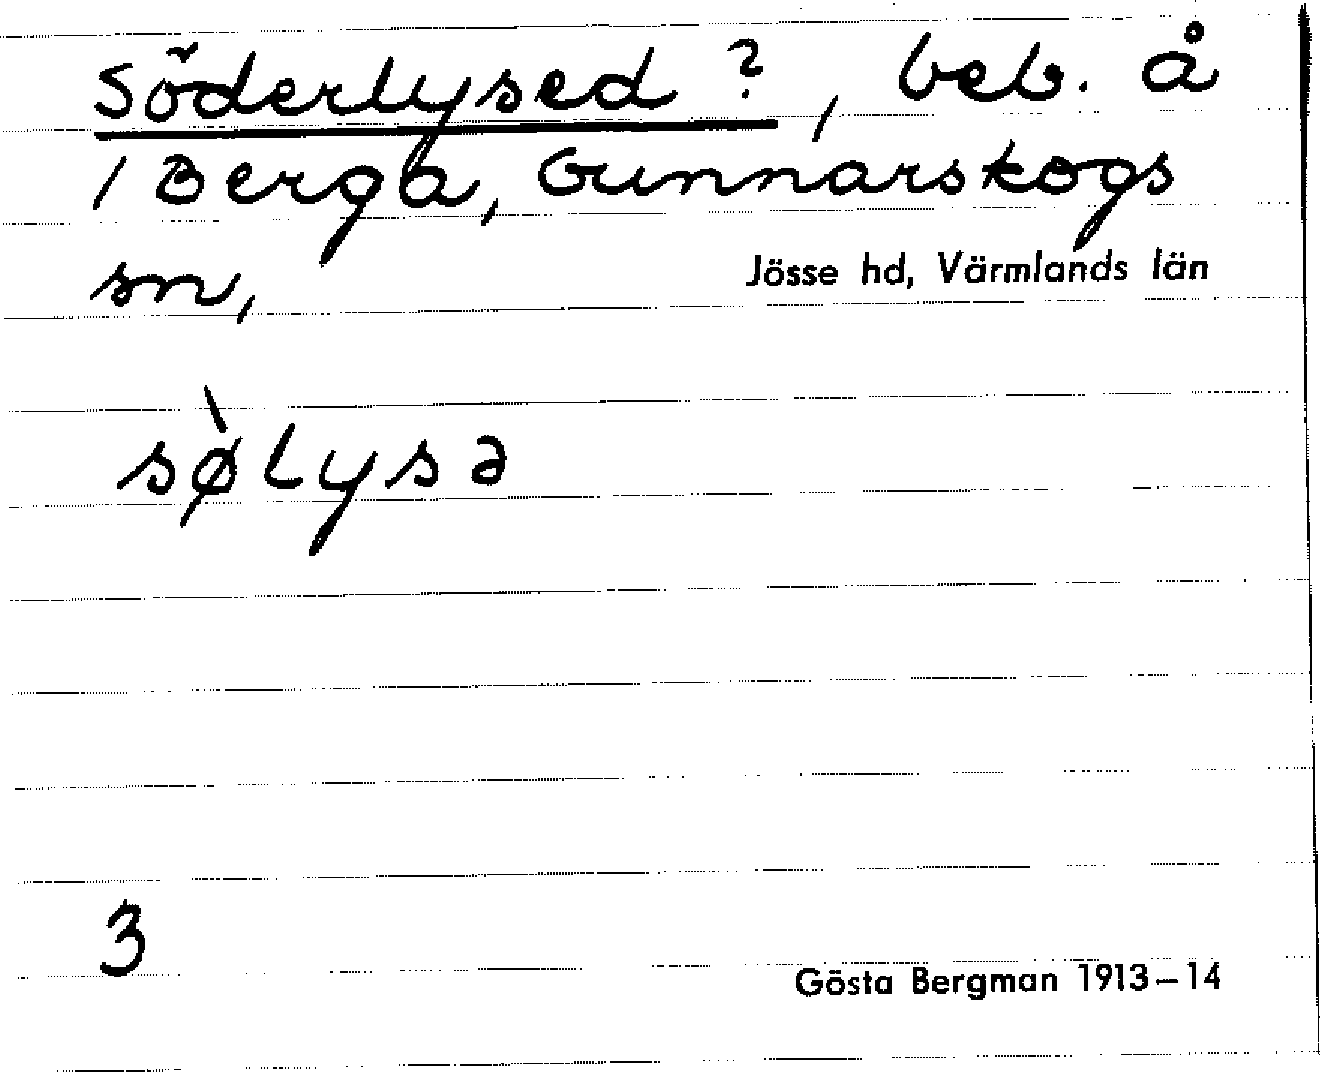 Söderlysed ?, beb. å
1 Berga, Gunnarskogs
sn,
Jösse hd, Värmlands län
sø̀Lysə
3
Gösta Bergman 1913–14